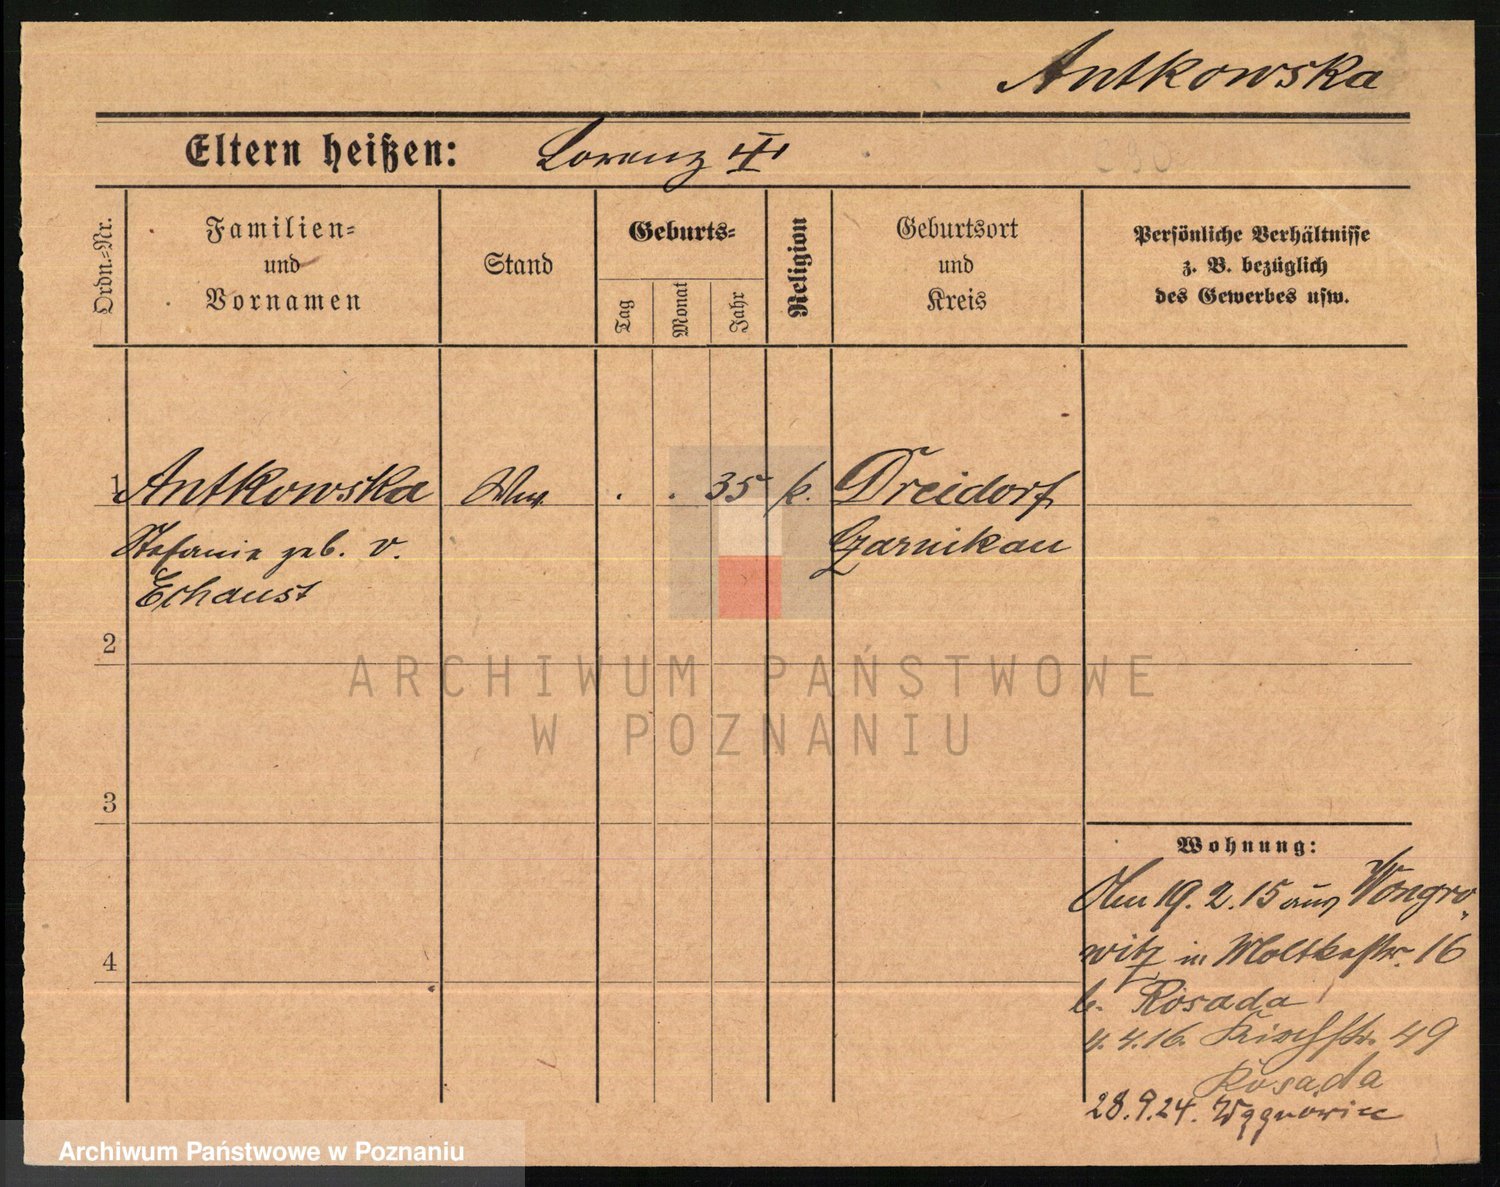 Antkowska
Eltern heißen: Lorenz
Ordn.-Nr.
Familien-
und
Vornamen
Stand
Geburts-
Tag
Monat
Jahr
Religion
Geburtsort
und
Kreis
Persönliche Verhältnisse
z. B. bezüglich
des Gewerbes usw.
1 Antkowska Ww. . . 35 k. Dreidorf
Stefanie geb. v. Czarnikau
Echaust
2
ARCHIWUM PAŃSTWOWE
W POZNANIU
3
Wohnung:
19.2.15 aus Wongro-
4
witz in Moltkestr. 16
b. Rosada
4.4.16. 49
Rosada
28.9.24. Wągrowiec
Archiwum Państwowe w Poznaniu